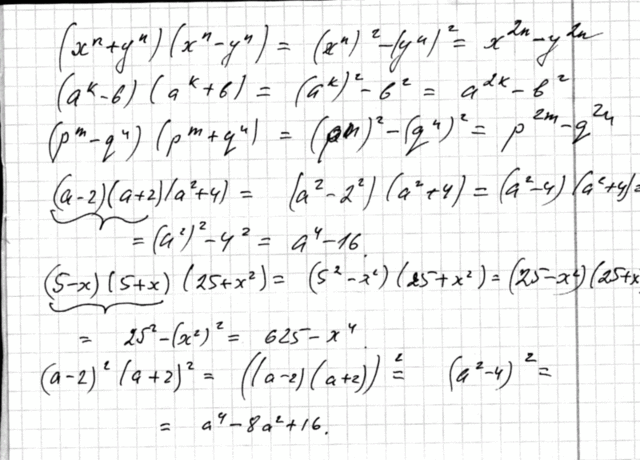 (xⁿ+yⁿ)(xⁿ-yⁿ) = (xⁿ)²-(yⁿ)² = x²ⁿ-y²ⁿ
(aᵏ-b)(aᵏ+b) = (aᵏ)²-b² = a²ᵏ-b²
(pᵐ-qⁿ)(pᵐ+qⁿ) = (pᵐ)²-(qⁿ)² = p²ᵐ-q²ⁿ
(a-2)(a+2)(a²+4) = (a²-2²)(a²+4) = (a²-4)(a²+4)=
= (a²)²-4² = a⁴-16.
(5-x)(5+x)(25+x²) = (5²-x²)(25+x²) = (25-x²)(25+x
= 25²-(x²)² = 625-x⁴.
(a-2)²(a+2)² = ((a-2)(a+2))² = (a²-4)² =
= a⁴-8a²+16.